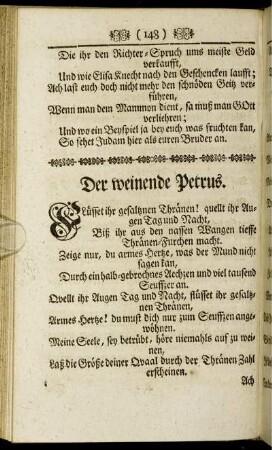 (148)
Die ihr den Richter-Spruch ums meiste Geld
verkaufft,
Und wie Elisa Knecht nach den Geschencken laufft;
Ach last euch doch nicht mehr den schnöden Geitz ver-
führen,
Wenn man dem Mammon dient, so muß man GOtt
verliehren;
Und wo ein Beyspiel ja bey euch was fruchten kan,
So sehet Judam hier als euren Bruder an.
Der weinende Petrus.
Flüsset ihr gesaltznen Thränen! quellt ihr Au-
gen Tag und Nacht,
Biß ihr aus den nassen Wangen tieffe
Thränen-Furchen macht.
Zeige nur, du armes Hertze, was der Mund nicht
sagen kan,
Durch ein halb-gebrochnes Aechzen und viel tausend
Seuffzer an.
Qvellt ihr Augen Tag und Nacht, flüsset ihr gesaltz-
nen Thränen,
Armes Hertze! du must dich nur zum Seuffzen ange-
wöhnen.
Meine Seele, sey betrübt, höre niemahls auf zu wei-
nen,
Laß die Größe deiner Qvaal durch der Thränen Zahl
erscheinen.
Ach